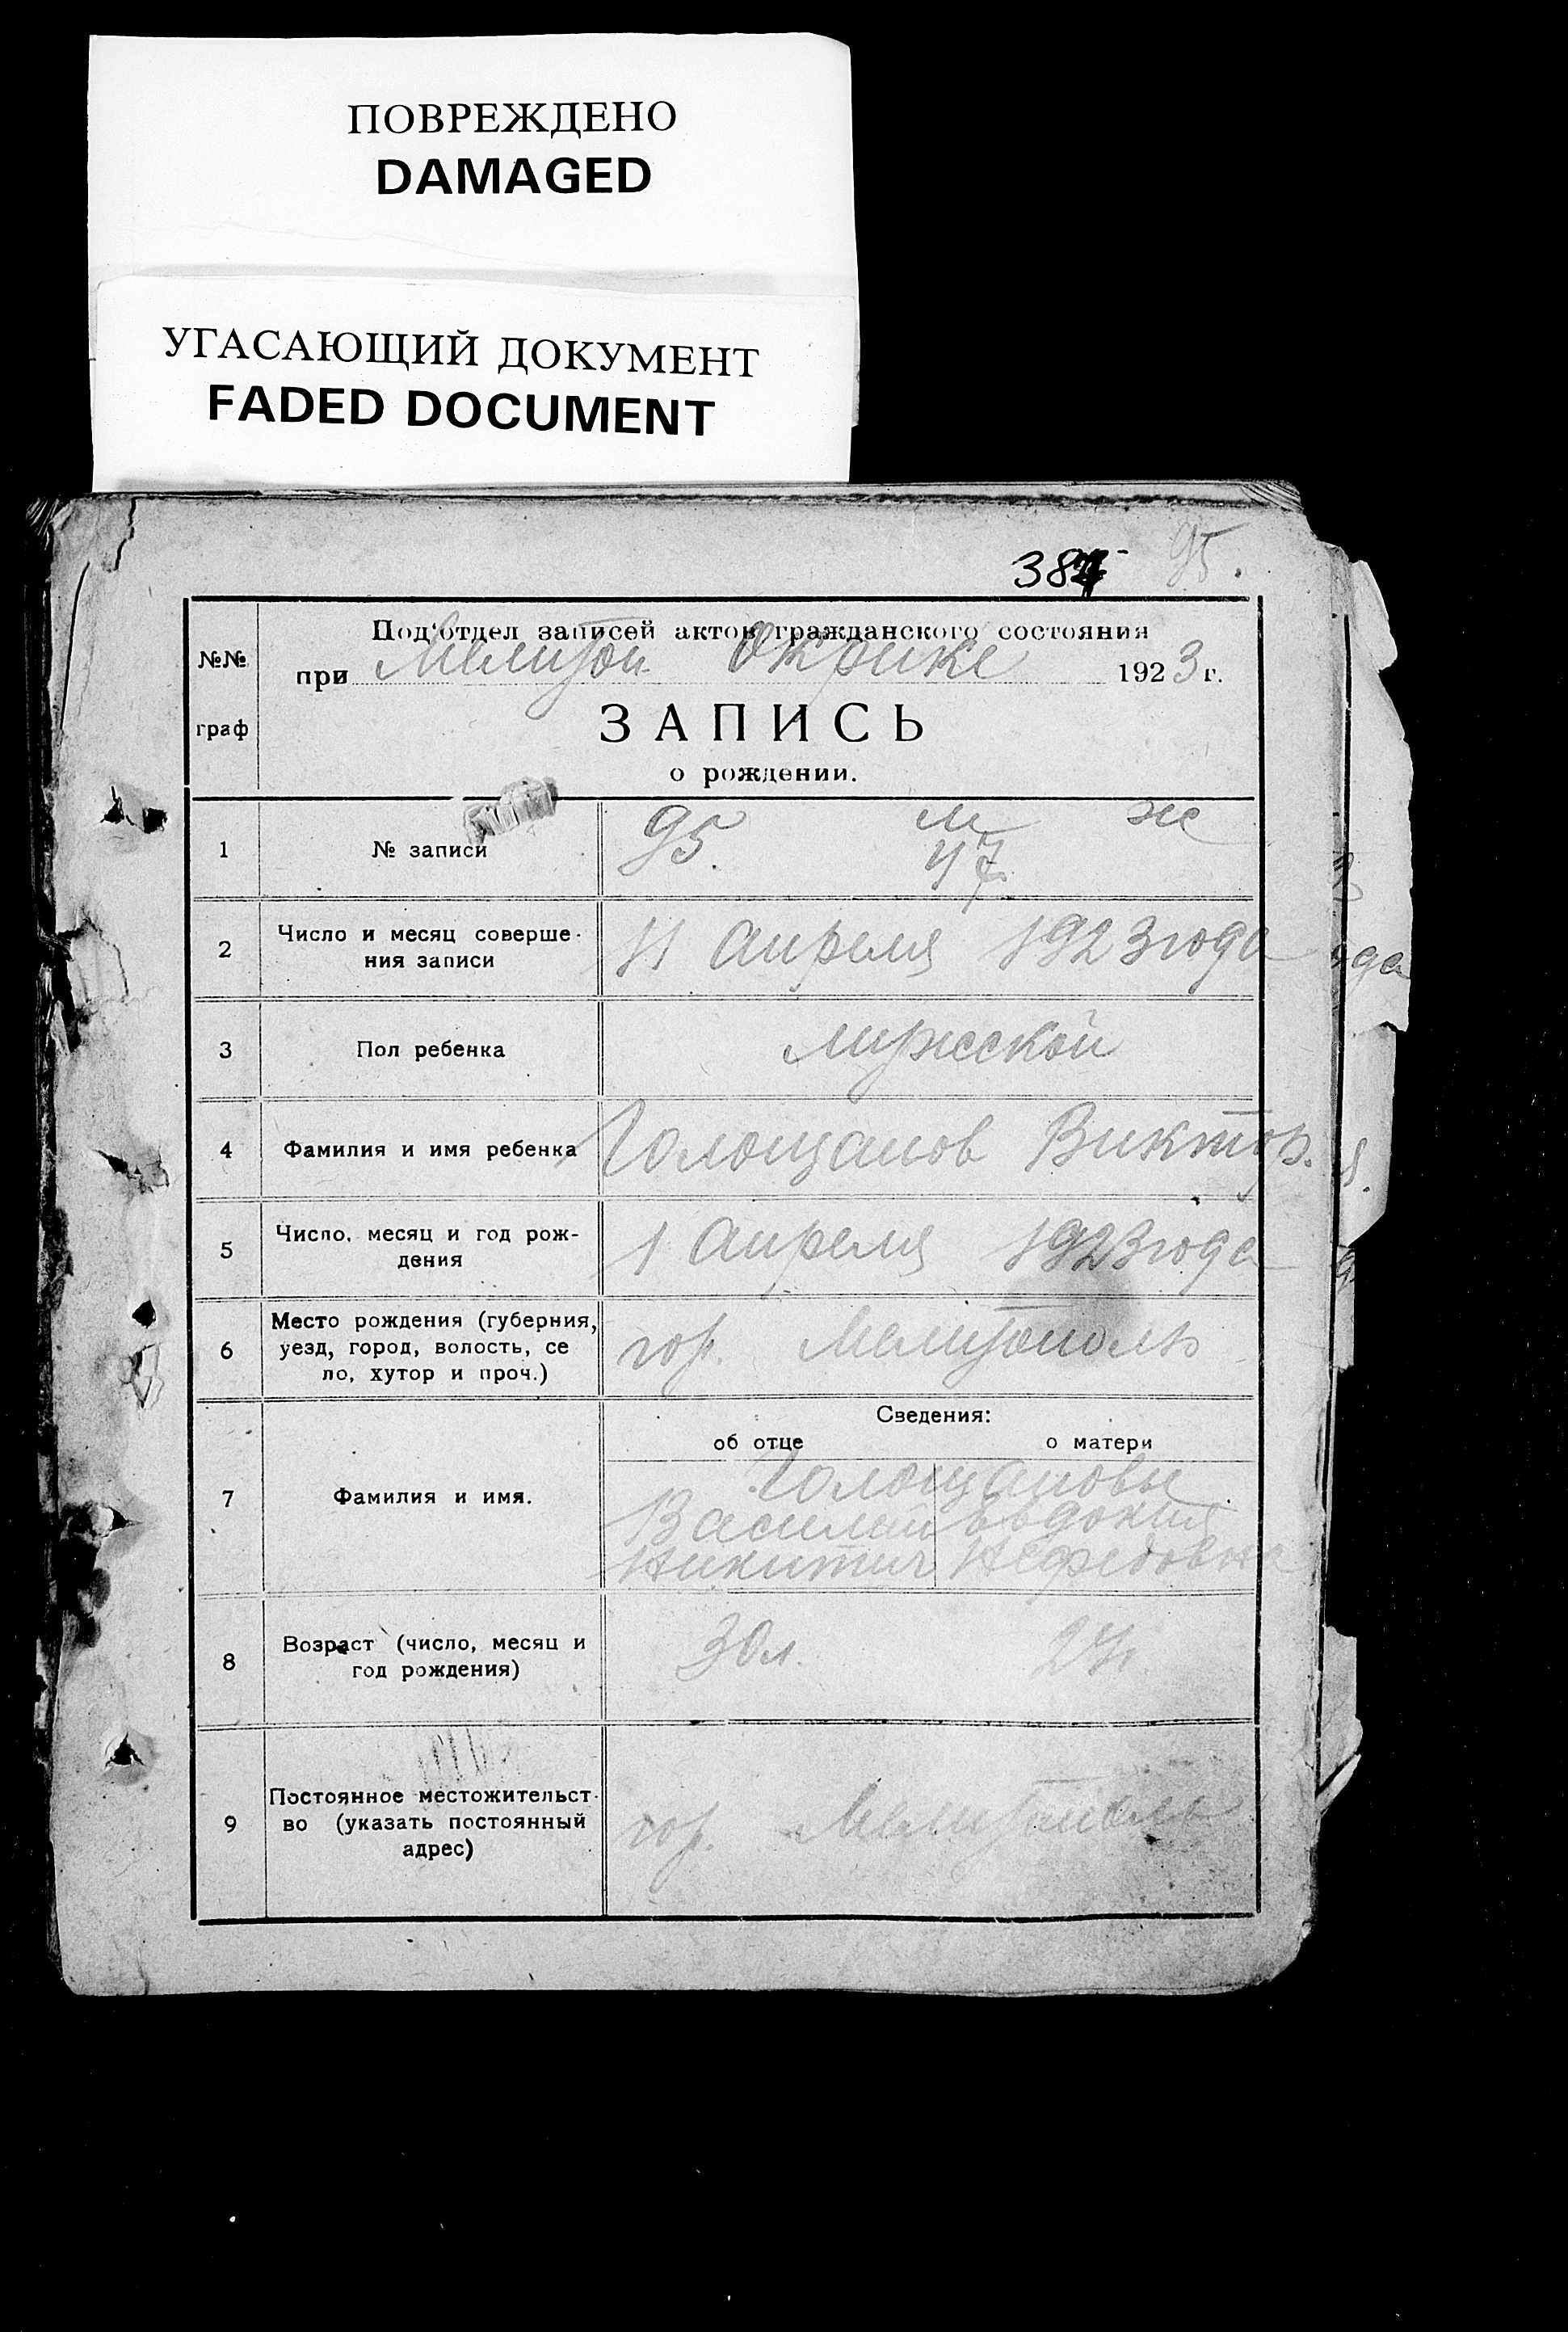 ПОВРЕЖДЕНО
DAMAGED
УГАСАЮЩИЙ ДОКУМЕНТ
FADED DOCUMENT
95.
№№
граф
Под'отдел записей актов гражданского состояния
при Мелитоп. Окрике 1923 г.
ЗАПИСЬ
о рождении.
1 № записи 95. м 47. ж
2 Число и месяц соверше-
ния записи 11 апреля 1923 года
3 Пол ребенка мужской
4 Фамилия и имя ребенка Голощапов Виктор.
5 Число, месяц и год рож-
дения 1 апреля 1923 года
6 Место рождения (губерния,
уезд, город, волость, се
ло, хутор и проч.) гор. Мелитополь
Сведения:
об отце о матери
7 Фамилия и имя. Голощаповы
Василий Евдокия
Никитич Нефедовна
8 Возраст (число, месяц и
год рождения) 30 л.
9 Постоянное местожительст-
во (указать постоянный
адрес) гор. Мелитополь